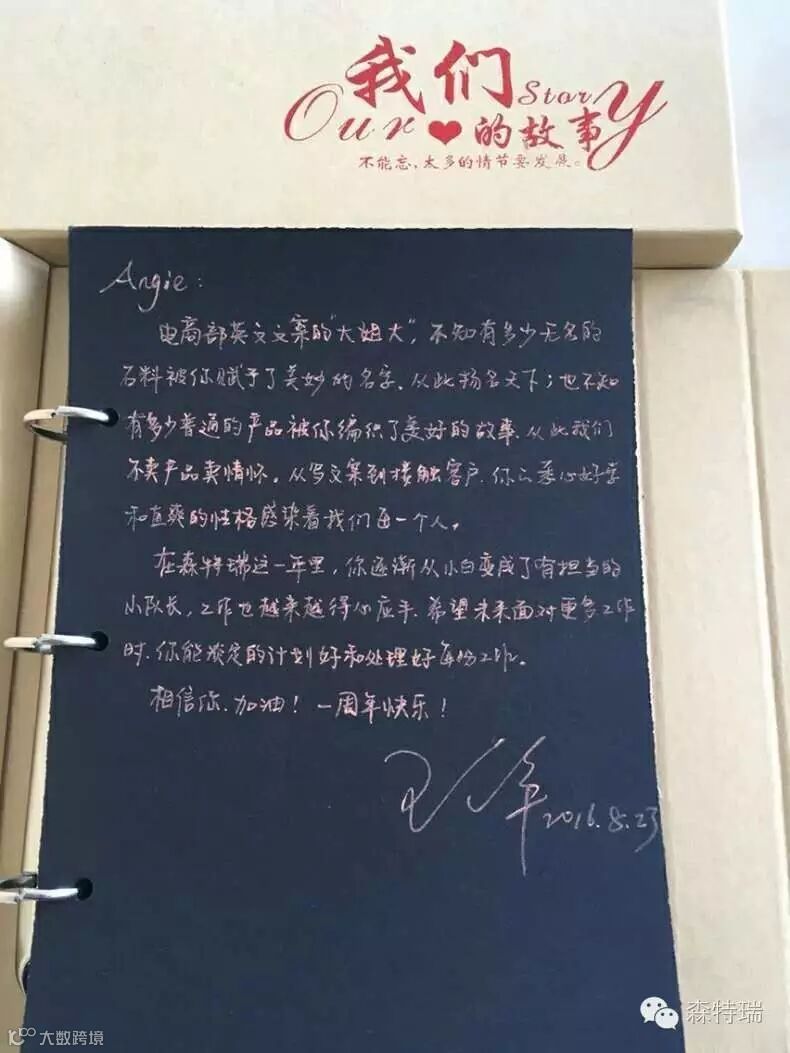 我们
Our Story
的故事
不能忘,太多的情节要发展。
Angie:
电商部英文文案的"大姐大",不知有多少无名的
石料被你赋予了美妙的名字、从此扬名天下;也不知
有多少普通的产品被你编织了美好的故事、从此我们
不卖产品卖情怀。从写文案到接触客户、你以悉心好学
和直爽的性格感染着我们每一个人。
在森特瑞这一年里,你逐渐从小白变成了有担当的
小队长,工作也越来越得心应手、希望未来面对更多工作
时、你能淡定的计划好和处理好每份工作。
相信你、加油!一周年快乐!
2016.8.23
森特瑞
大数跨境